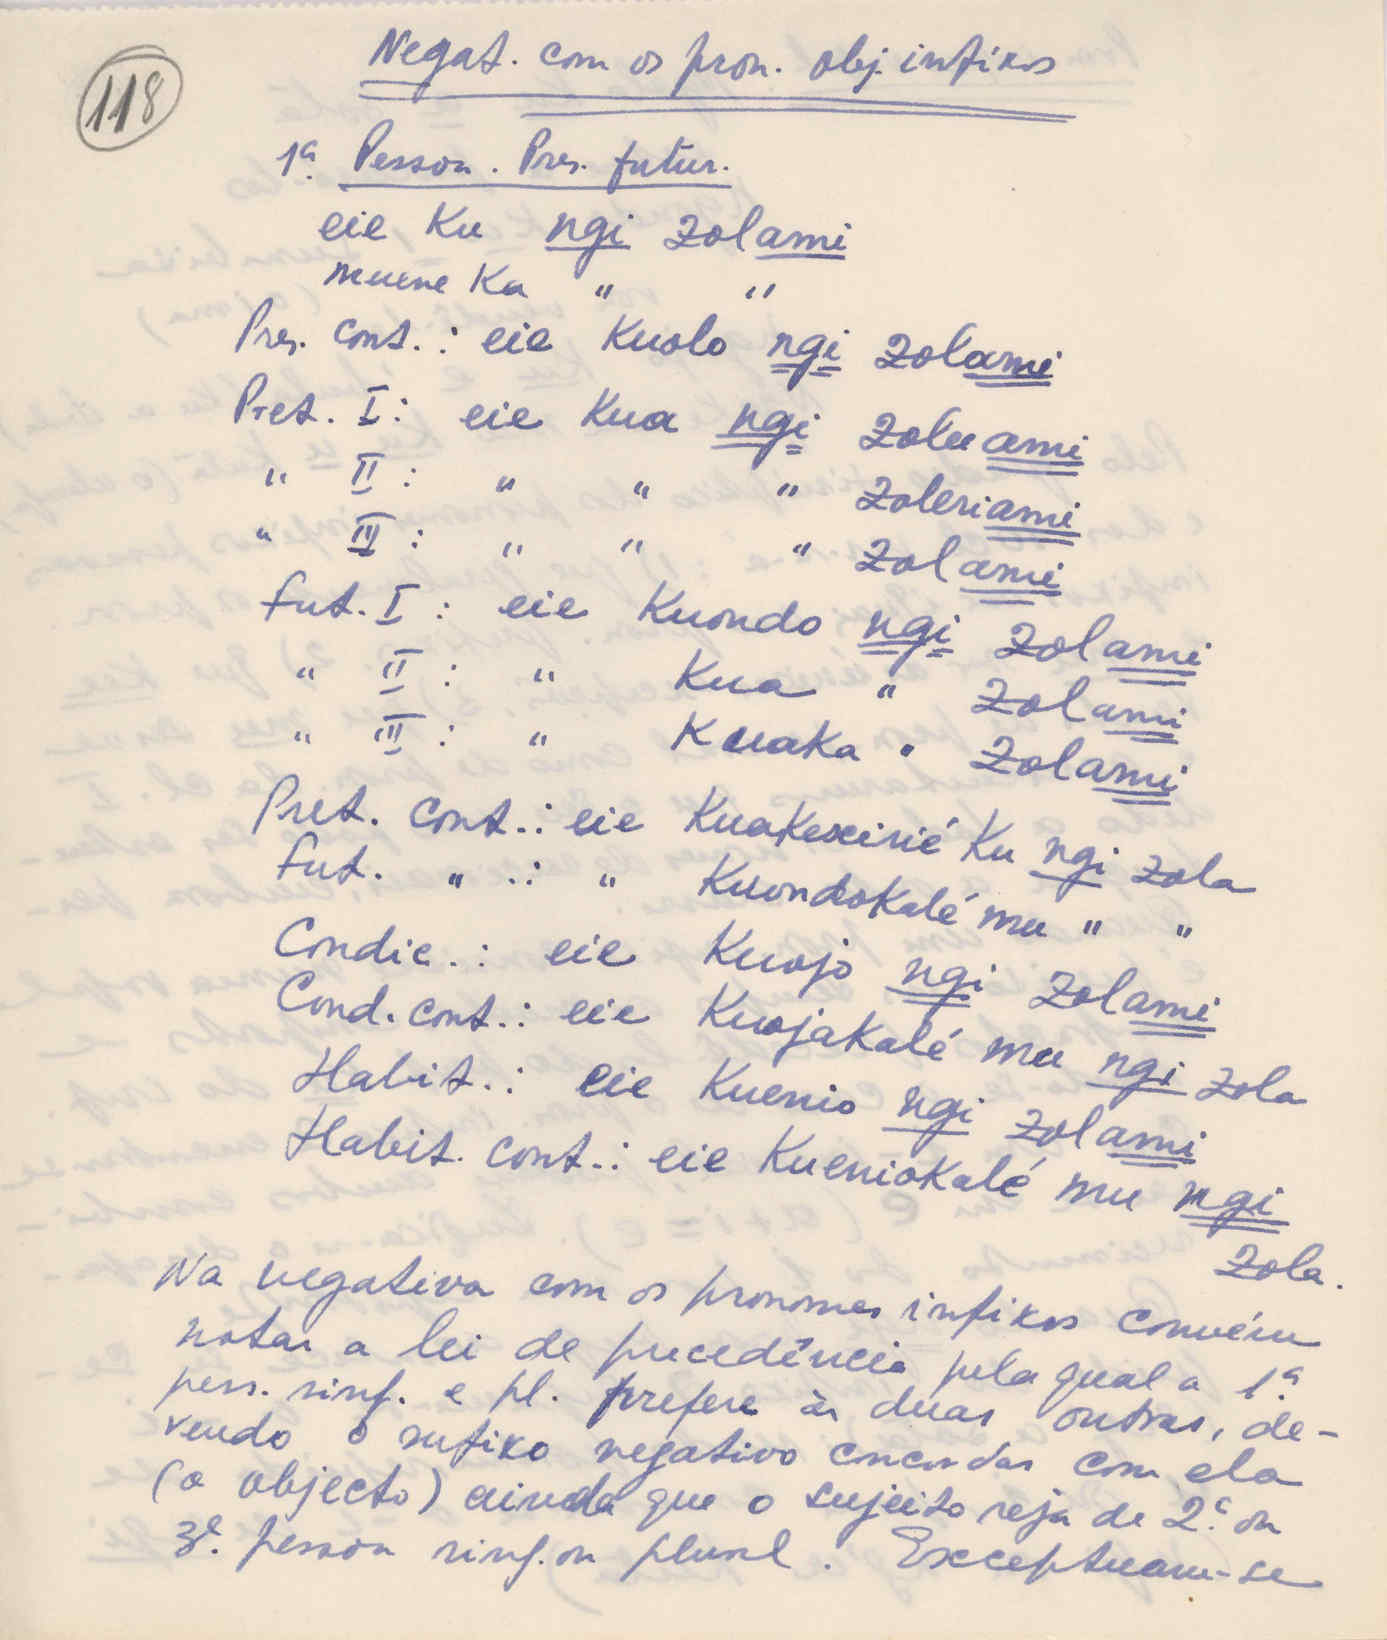 118
Negat. com os pron. obj. infixos
1ª Pessoa. Pres. futur.
eie Ku ngi zolami
muene Ka " "
Pres. Cont.: eie Kuolo ngi zolami
Pret. I: eie Kua ngi zoluami
" II: " " " zoleriami
" III: " " " zolami
Fut. I: eie Kuondo ngi zolami
" II: " Kua " zolami
" III: " Kuaka " zolami
Pret. Cont.: eie Kuakexirié Ku ngi zola
Fut. " .: " Kuondokalé mu " "
Condic.: eie Kuojo ngi zolami
Cond. cont.: eie Kuojakalé mu ngi zola
Habit.: eie Kuenio ngi zolami
Habit. Cont.: eie Kueniokalé mu ngi
zola.
Na negativa com os pronomes infixos convém
notar a lei de precedência pela qual a 1ª
pess. sing. e pl. prefere às duas outras, de-
vendo o sufixo negativo concordar com ela
(o objecto) ainda que o sujeito seja de 2ª ou
3ª pessoa sing. ou plural. Exceptuam-se